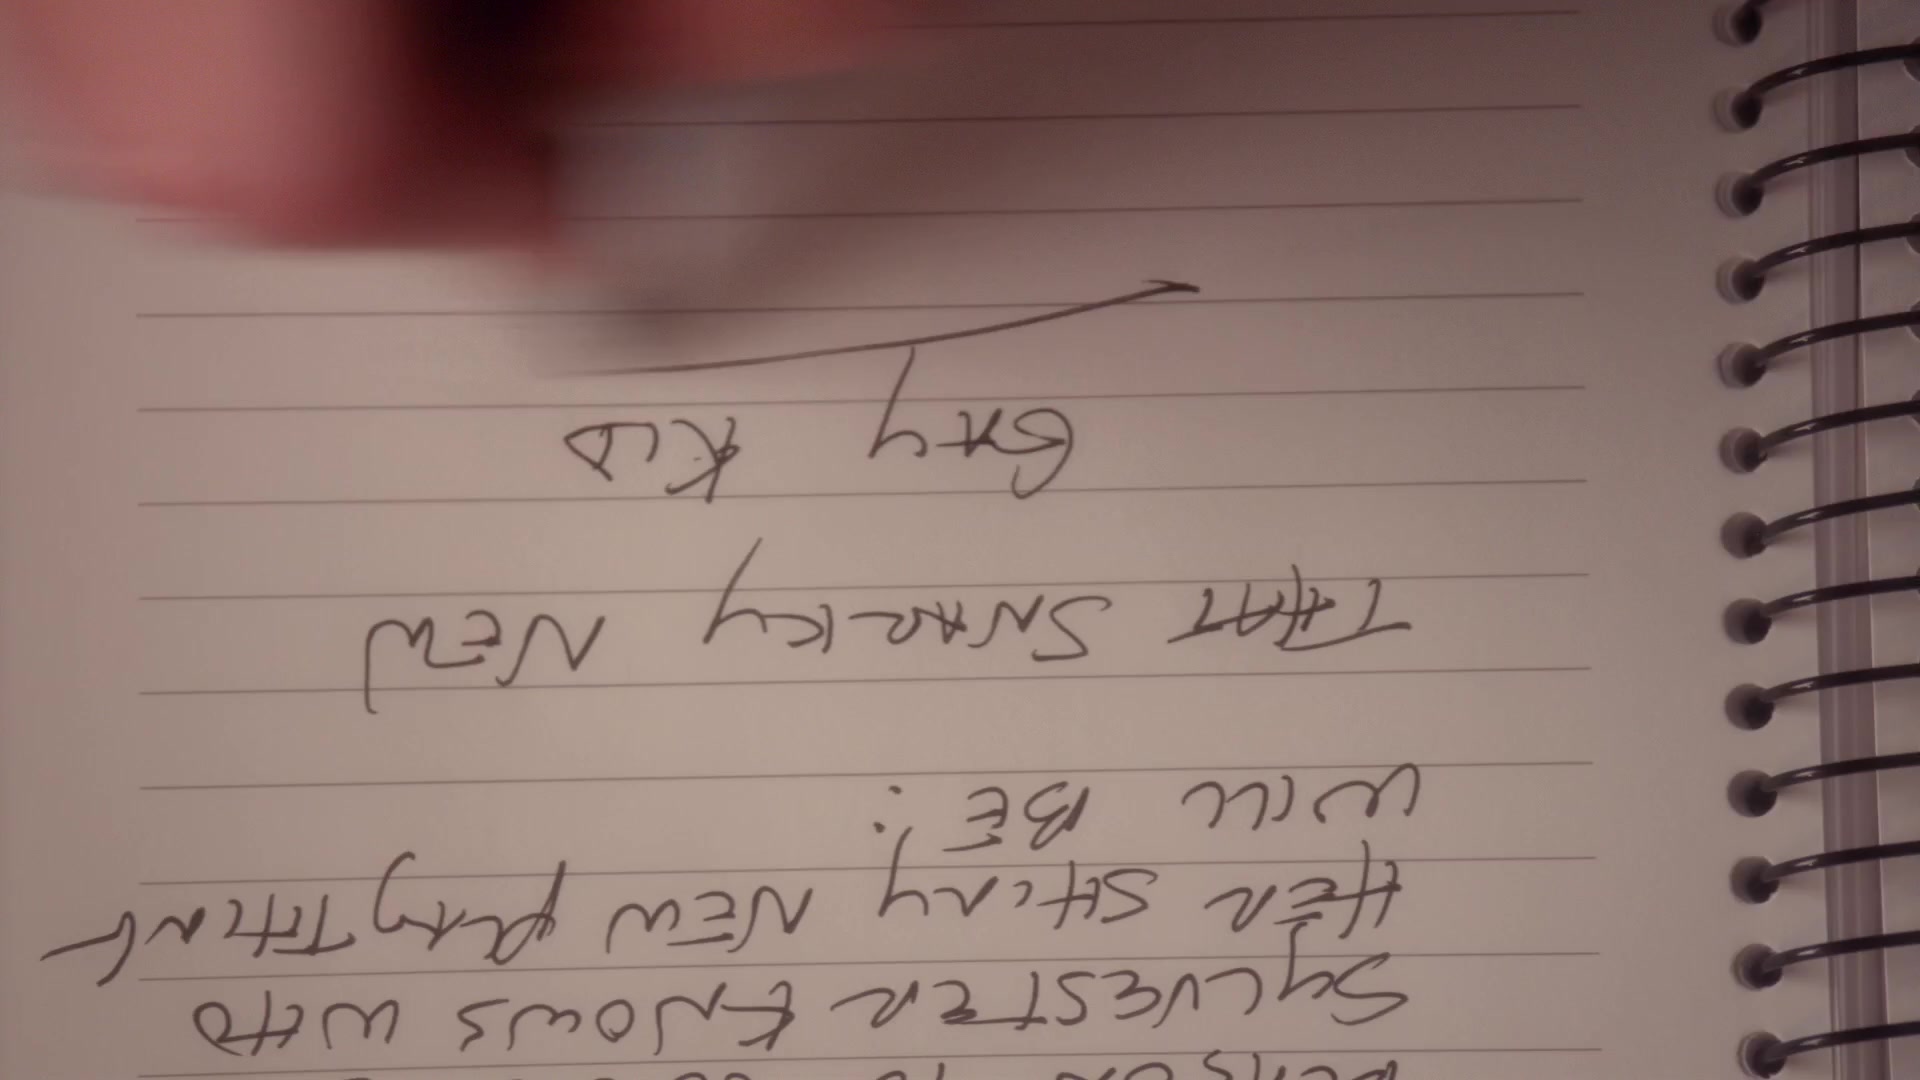 SYLVESTER KNOWS WHO
HER SHINY NEW PLAYTHING
WILL BE:
THAT SNARKY NEW
GAY KID